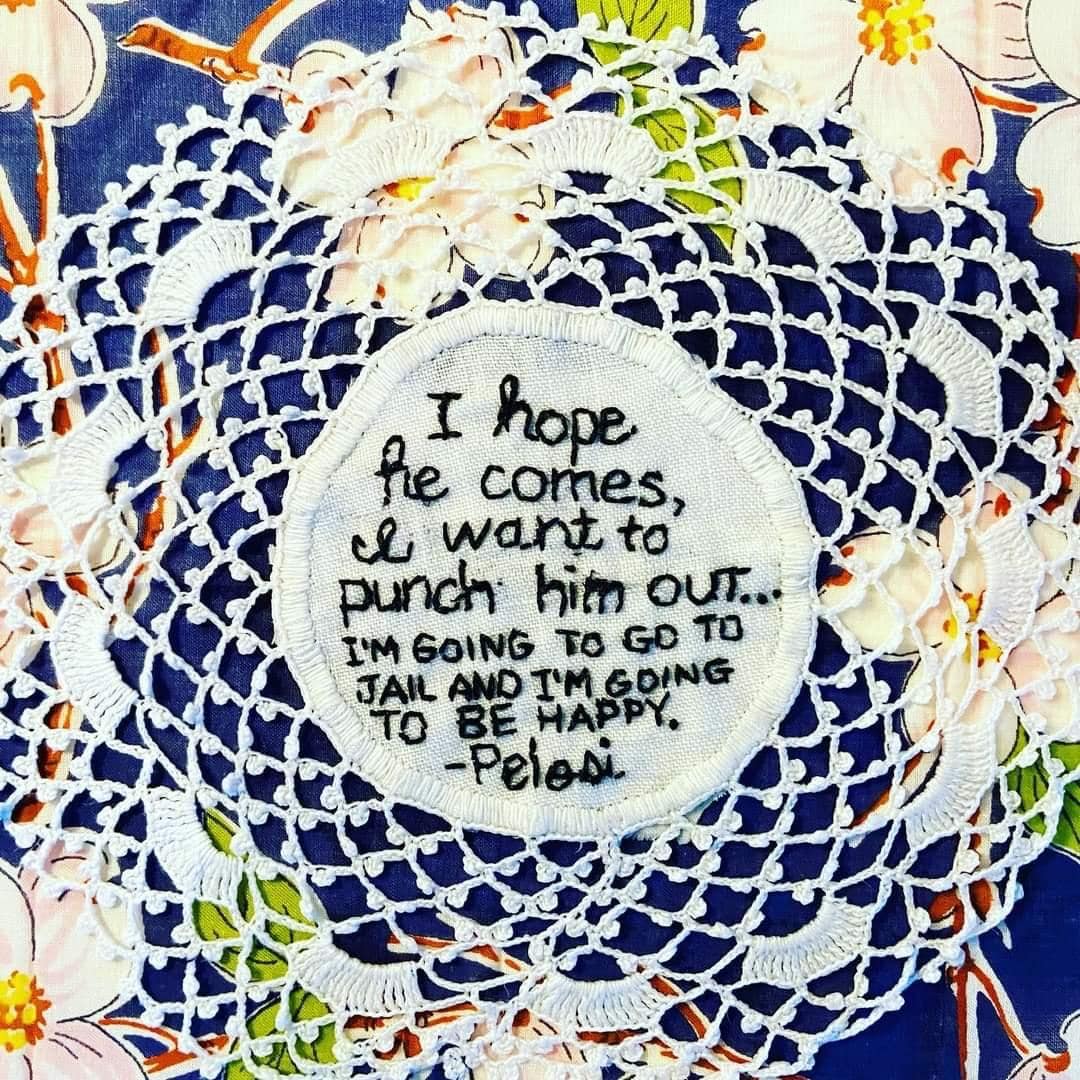 I hope
he comes,
I want to
punch him out...
I'M GOING TO GO TO
JAIL AND I'M GOING
TO BE HAPPY.
-Pelosi